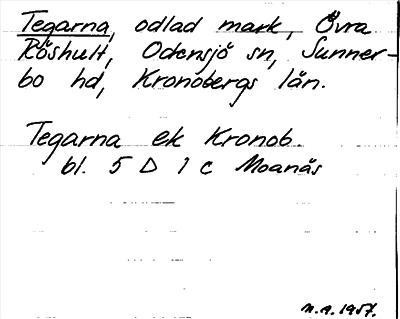 Tegarna, odlad mark, Övra
Röshult, Odensjö sn, Sunner-
bo hd, Kronobergs län.
Tegarna ek Kronob.
bl. 5 D 1 c Moanäs
n.a. 1957.